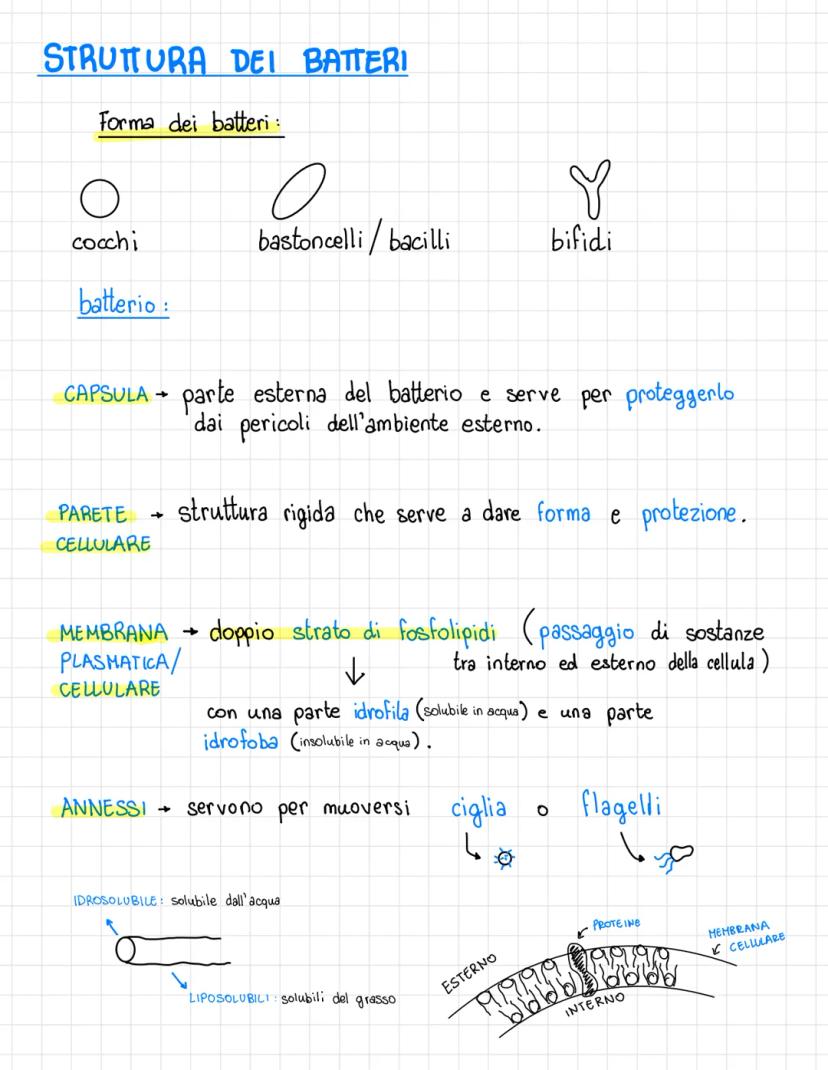 STRUTTURA DEI BATTERI
Forma dei batteri:
cocchi
bastoncelli / bacilli
bifidi
batterio:
CAPSULA → parte esterna del batterio e serve per proteggerlo
dai pericoli dell'ambiente esterno.
PARETE → struttura rigida che serve a dare forma e protezione.
CELLULARE
MEMBRANA → doppio strato di fosfolipidi (passaggio di sostanze
PLASMATICA/ tra interno ed esterno della cellula)
CELLULARE
con una parte idrofila (solubile in acqua) e una parte
idrofoba (insolubile in acqua).
ANNESSI → servono per muoversi ciglia o flagelli
IDROSOLUBILE: solubile dall'acqua
LIPOSOLUBILI: solubili del grasso
PROTEINE
MEMBRANA
CELLULARE
ESTERNO
INTERNO